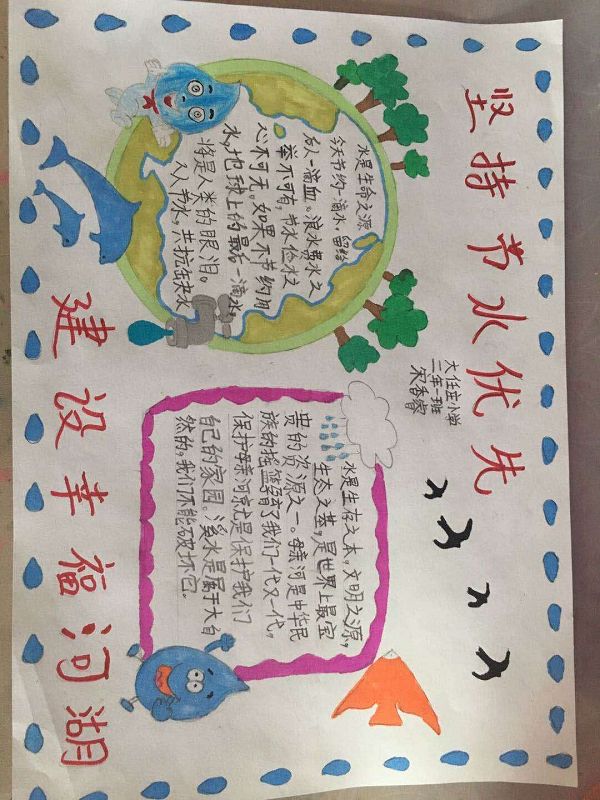 坚持节水优先
大任庄小学
三年一班
宋香睿
水是生命之源
今天节约一滴水，留给
后人一滴血。浪水费水之
举不可有，节水水之
心不可无。如果不节约用
水，地球上的最后一滴水，
将是人类的眼泪。
人人节水，共抗缺水
水是生存之本，文明之源，
生态之基，是世界上最宝
贵的资源之一。母亲河是中华民
族的摇篮孕育了我们一代又一代。
保护母亲河就是保护我们
自己的家园。溪水是属于大自
然的，我们不能破坏它。
建设幸福河湖